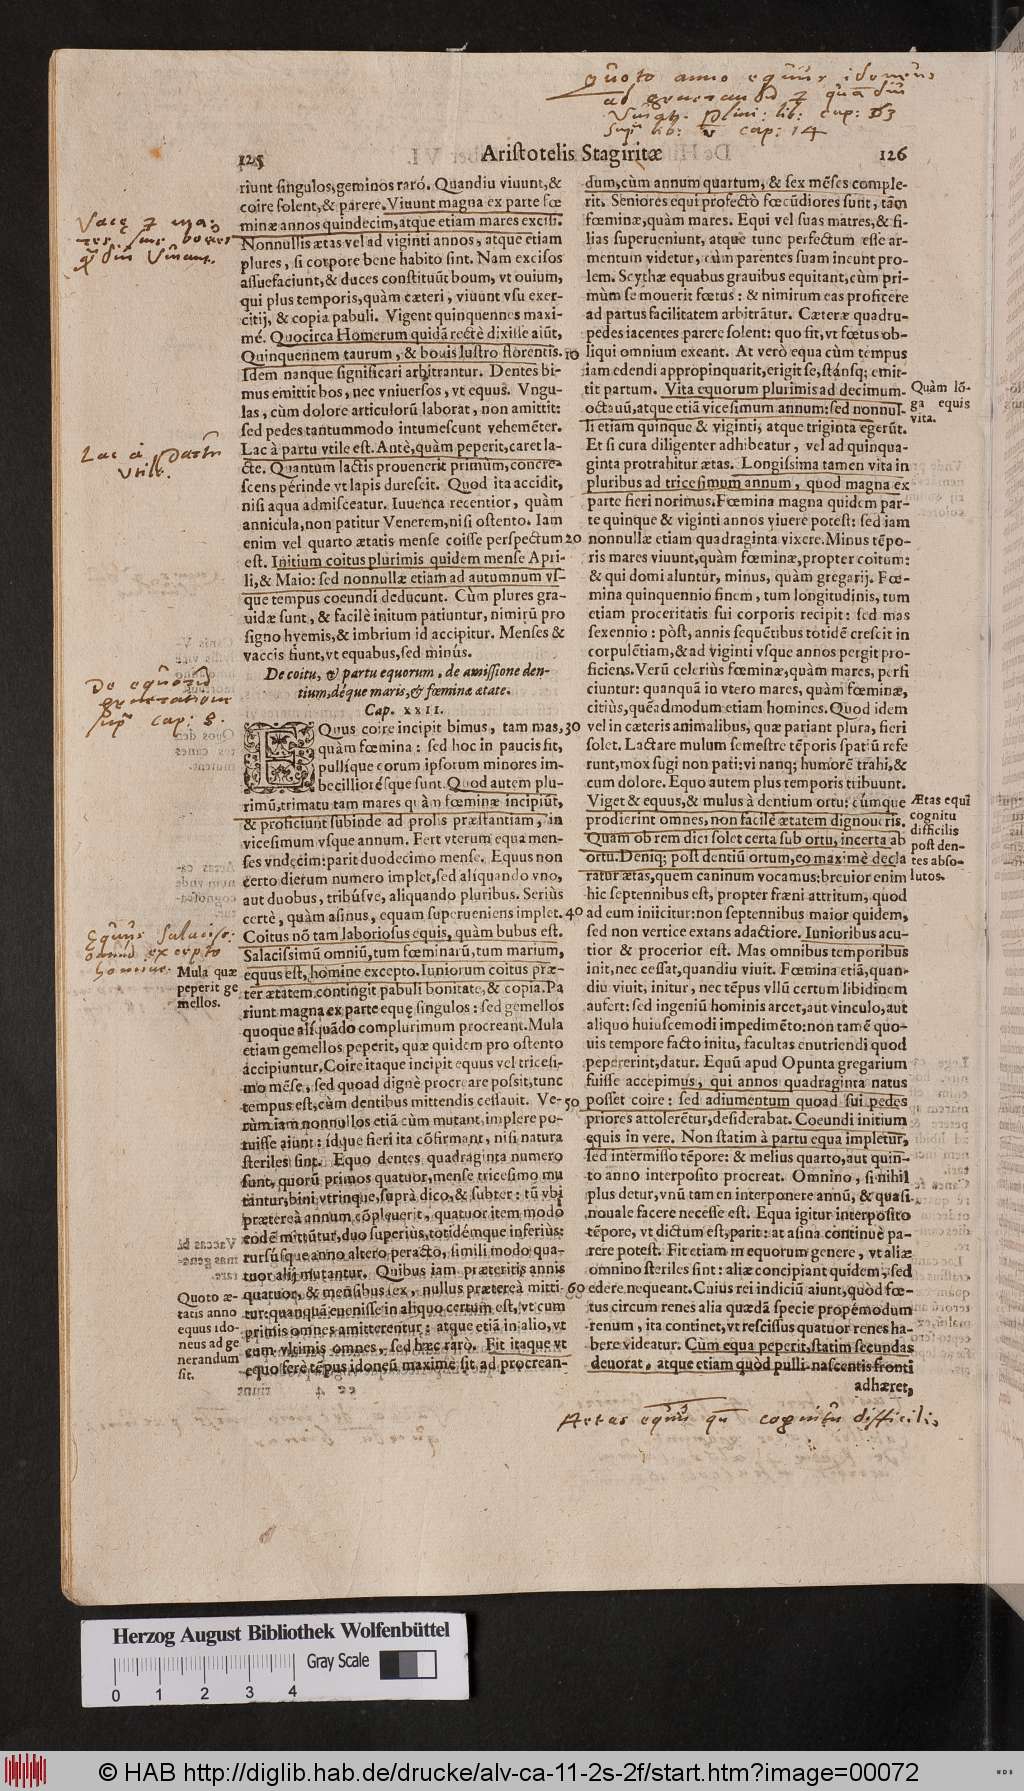 Quoto anno equus idoneus
ad generandū & quādiu
lib: cap: 63
lib: v cap: 14
125
Aristotelis Stagiritæ
126
riunt singulos, geminos rarò. Quandiu viuunt, &
coire solent, & parere. Viuunt magna ex parte fœ
minæ annos quindecim, atque etiam mares excisi.
Nonnullis ætas vel ad viginti annos, atque etiam
plures, si corpore bene habito sint. Nam excisos
assuefaciunt, & duces constituūt boum, vt ouium,
qui plus temporis, quàm cæteri, viuunt vsu exer-
citij, & copia pabuli. Vigent quinquennes maxi-
mè. Quocirca Homerum quidā rectè dixisse aiūt,
Quinquennem taurum, & bouis lustro florentis. 10
Idem nanque significari arbitrantur. Dentes bi-
mus emittit bos, nec vniuersos, vt equus. Vngu-
las, cùm dolore articulorū laborat, non amittit:
sed pedes tantummodo intumescunt vehemēter.
Lac à partu vtile est. Antè, quàm peperit, caret la-
cte. Quantum lactis prouenerit primùm, concre-
scens périnde vt lapis durescit. Quod ita accidit,
nisi aqua admisceatur. Iuuenca recentior, quàm
annicula, non patitur Venerem, nisi ostento. Iam
enim vel quarto ætatis mense coisse perspectum 20
est. Initium coitus plurimis quidem mense Apri-
li, & Maio: sed nonnullæ etiam ad autumnum vs-
que tempus coeundi deducunt. Cùm plures gra-
uidæ sunt, & facilè initum patiuntur, nimirū pro
signo hyemis, & imbrium id accipitur. Menses &
vaccis fiunt, vt equabus, sed minùs.
De coitu, & partu equorum, de amissione den-
tium, déque maris, & fœminæ ætate.
Cap. XXII.
EQuus coire incipit bimus, tam mas, 30
quàm fœmina: sed hoc in paucis fit,
pullíque eorum ipsorum minores im-
becilliorésque sunt. Quod autem plu-
rimū, trimatu tam mares quàm fœminæ incipiūt,
& proficiunt subinde ad prolis præstantiam, in
vicesimum vsque annum. Fert vterum equa men-
ses vndecim: parit duodecimo mense. Equus non
certo dierum numero implet, sed aliquando vno,
aut duobus, tribúsve, aliquando pluribus. Seriùs
certè, quàm asinus, equam superueniens implet. 40
Coitus nō tam laboriosus equis, quàm bubus est.
Salacissimū omniū, tum fœminarū, tum marium,
equus est, homine excepto. Iuniorum coitus præ-
ter ætatem contingit pabuli bonitate, & copia. Pa
riunt magna ex parte equę singulos: sed gemellos
quoque aliquādo complurimum procreant. Mula
etiam gemellos peperit, quæ quidem pro ostento
accipiuntur. Coire itaque incipit equus vel tricesi-
mo mēse, sed quoad dignè procreare possit, tunc
tempus est, cùm dentibus mittendis cessauit. Ve- 50
rùm iam nonnullos etiā cùm mutant, implere po-
tuisse aiunt: idque fieri ita cōfirmant, nisi natura
steriles sint. Equo dentes quadraginta numero
sunt, quorū primos quatuor, mense tricesimo mu
tantur, bini vtrinque, suprà dico, & subter: tū vbi
præterea annum cōpleuerit, quatuor item modo
eodē mittūtur, duo superiùs, totidémque inferiùs:
rursúsque anno altero peracto, simili modo qua-
tuor alij mutantur. Quibus iam præteritis annis
quatuor, & mensibus sex, nullus præterea mitti- 60
tur: quanquā euenisse in aliquo certum est, vt cum
primis omnes amitterentur: atque etiā in alio, vt
cum vltimis omnes, sed hæc rarò. Fit itaque vt
equo ferè tēpus idoneū maximè sit ad procrean-
Vacę & ma-
res sine boues
quādiu viuant.
Lac à partu
vtile.
De equorū
generatione
supr cap: 8.
Equus salaciss:
omniū excepto
homine.
Mula quæ
peperit ge
mellos.
Quoto æ-
tatis anno
equus ido-
neus ad ge
nerandum
sit.
dum, cùm annum quartum, & sex mēses comple-
rit. Seniores equi profectò fœcūdiores sunt, tàm
fœminæ, quàm mares. Equi vel suas matres, & fi-
lias superueniunt, atque tunc perfectum esse ar-
mentum videtur, cùm parentes suam ineunt pro-
lem. Scythæ equabus grauibus equitant, cùm pri-
mùm se mouerit fœtus: & nimirum eas proficere
ad partus facilitatem arbitrātur. Cæteræ quadru-
pedes iacentes parere solent: quo fit, vt fœtus ob-
liqui omnium exeant. At verò equa cùm tempus
iam edendi appropinquarit, erigit se, stánsq; emit-
tit partum. Vita equorum plurimis ad decimum-
octauū, atque etiā vicesimum annum: sed nonnul-
li etiam quinque & viginti, atque triginta egerūt.
Et si cura diligenter adhibeatur, vel ad quinqua-
ginta protrahitur ætas. Longissima tamen vita in
pluribus ad tricesimum annum, quod magna ex
parte fieri norimus. Fœmina magna quidem par-
te quinque & viginti annos viuere potest: sed iam
nonnullæ etiam quadraginta vixere. Minus tēpo-
ris mares viuunt, quàm fœminæ, propter coitum:
& qui domi aluntur, minus, quàm gregarij. Fœ-
mina quinquennio finem, tum longitudinis, tum
etiam proceritatis sui corporis recipit: sed mas
sexennio: pòst, annis sequētibus totidē crescit in
corpulētiam, & ad viginti vsque annos pergit pro-
ficiens. Verū celeriùs fœminæ, quàm mares, perfi
ciuntur: quanquā in vtero mares, quàm fœminæ,
citiùs, quēadmodum etiam homines. Quod idem
vel in cæteris animalibus, quæ pariant plura, fieri
solet. Lactare mulum semestre tēporis spatiū refe
runt, mox sugi non pati: vi nanq; humorē trahi, &
cum dolore. Equo autem plus temporis tribuunt.
Viget & equus, & mulus à dentium ortu: cúmque
prodierint omnes, non facilè ætatem dignoueris.
Quàm ob rem dici solet certa sub ortu, incerta ab
ortu. Deniq; post dentiū ortum, eo maximè decla
ratur ætas, quem caninum vocamus: breuior enim
hic septennibus est, propter fræni attritum, quod
ad eum iniicitur: non septennibus maior quidem,
sed non vertice extans adactiore. Iunioribus acu-
tior & procerior est. Mas omnibus temporibus
init, nec cessat, quandiu viuit. Fœmina etiā, quan-
diu viuit, initur, nec tēpus vllū certum libidinem
aufert: sed ingeniū hominis arcet, aut vinculo, aut
aliquo huiuscemodi impedimēto: non tamē quo-
uis tempore facto initu, facultas enutriendi quod
pepererint, datur. Equū apud Opunta gregarium
fuisse accepimus, qui annos quadraginta natus
posset coire: sed adiumentum quoad sui pedes
priores attolerētur, desiderabat. Coeundi initium
equis in vere. Non statim à partu equa impletur,
sed intermisso tēpore: & melius quarto, aut quin-
to anno interposito procreat. Omnino, si nihil
plus detur, vnū tamen interponere annū, & quasi
nouale facere necesse est. Equa igitur interposito
tēpore, vt dictum est, parit: at asina continuè pa-
rere potest. Fit etiam in equorum genere, vt aliæ
omnino steriles sint: aliæ concipiant quidem, sed
edere nequeant. Cuius rei indiciū aiunt, quòd fœ-
tus circum renes alia quædā specie propémodum
renum, ita continet, vt rescissus quatuor renes ha-
bere videatur. Cùm equa peperit, statim secundas
deuorat, atque etiam quòd pulli nascentis fronti
adhæret,
Quàm lō-
ga equis
vita.
Ætas equi
cognitu
difficilis
post den-
tes abso-
lutos.
Aetas equi cognitu difficilis
Herzog August Bibliothek Wolfenbüttel
Gray Scale
0 1 2 3 4
© HAB http://diglib.hab.de/drucke/alv-ca-11-2s-2f/start.htm?image=00072